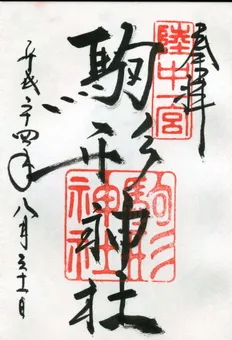 奉拝
陸中一宮
駒形神社
駒形神社
平成二十四年八月三十一日